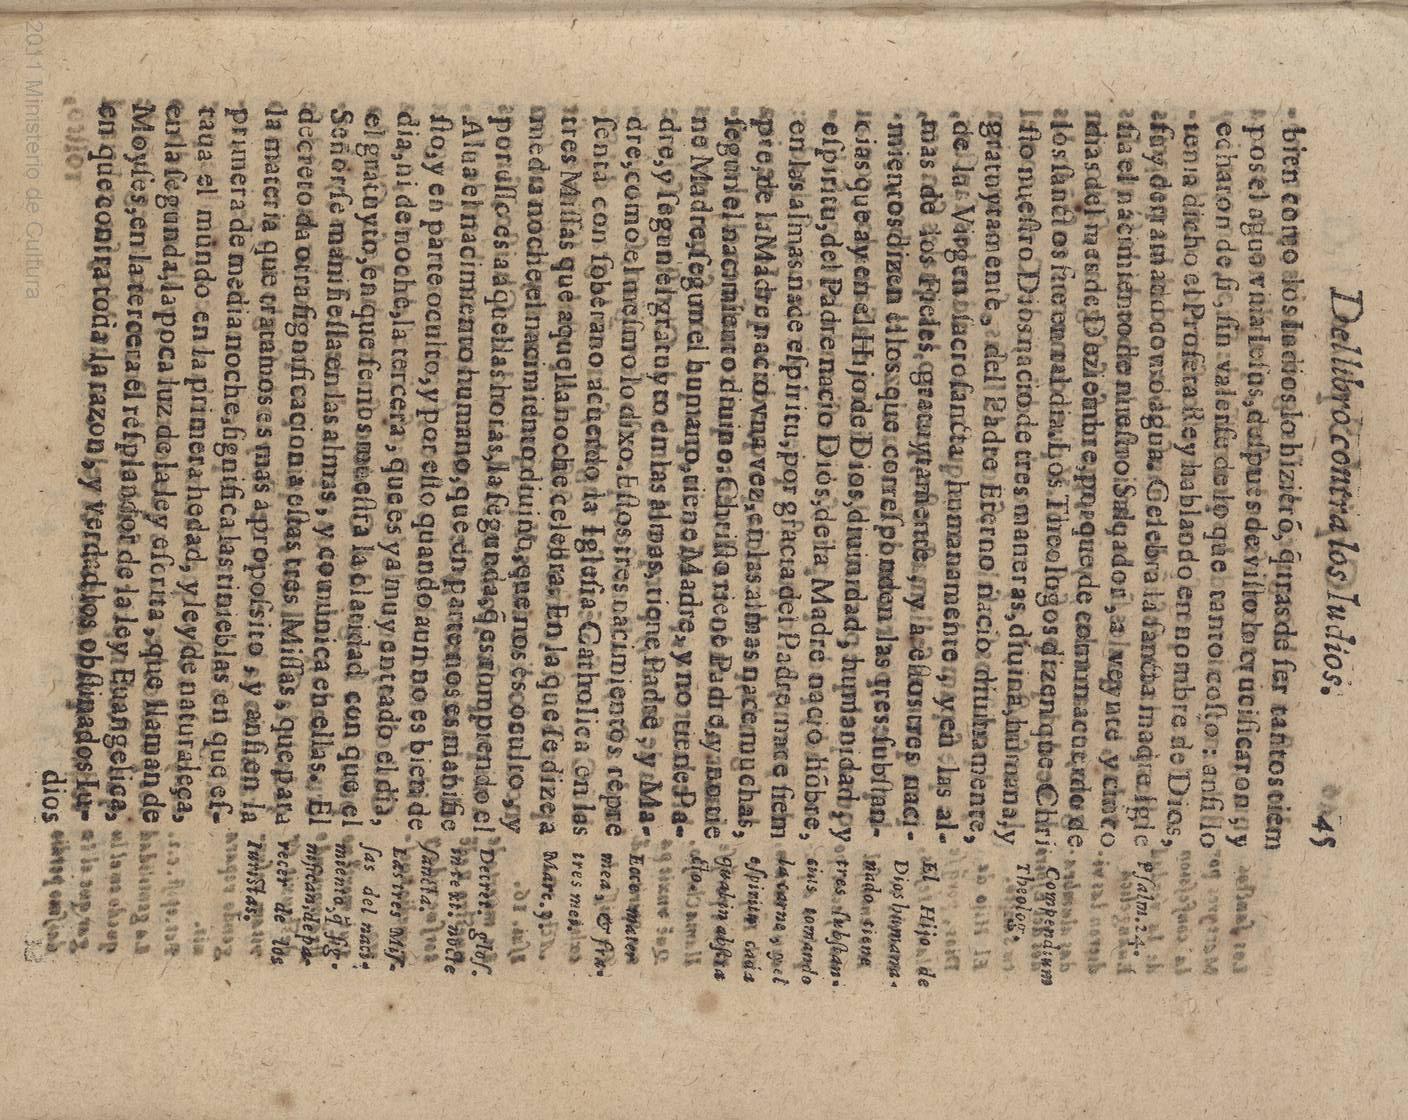 Del libro contra los Iudios. 45
bien como los Iudios lo hizierõ, q̃ tras de ser tantos tiem
pos el agua viuа Iesus, despues de visto le crucificaron, y
echaron de si, sin valerse de lo que tanto costo: ansi lo
tenia dicho el Profeta Rey hablando en nombre de Dios,
Celebra la sancta madre Igle
sia el nacimiento de nuestro Saluador, a veynte y cinco
dias del mes de Deziembre, porque de comun acuerdo de
los sanctos fue en tal dia. Los Theologos dizen que Chri
sto nuestro Dios nacio de tres maneras, diuina, humana, y
gratuytamente, del Padre Eterno nacio diuinamente,
de la Virgen sacrosancta humanamente, y en las al-
mas de los Fieles gratuytamente, y a estos tres naci-
mientos dizen ellos que corresponden las tres substan-
cias que ay en el Hijo de Dios, diuinidad, humanidad, y
espiritu, del Padre nacio Dios, de la Madre nacio hõbre,
en las almas nace espiritu, por gracia del Padre nace siem
pre, de la Madre nacio vna vez, en las almas nace muchas,
segun el nacimiento diuino. Christo tiene Padre, y no tie
ne Madre, segun el humano, tiene Madre, y no tiene Pa-
dre, y segun el gratuyto en las almas, tiene Padre, y Ma-
dre, como el mesmo lo dixo. Estos tres nacimientos repre
senta con soberano acuerdo la Iglesia Catholica en las
tres Missas que aquella noche celebra. En la que se dize a
media noche, el nacimiento diuino, que nos es oculto, y
por esso es a aquellas horas, la segunda, q̃ es rompiendo el
Alua el nacimiento humano, que en parte nos es manifie
sto, y en parte oculto, y por esto quando aun no es bien de
dia, ni de noche, la tercera, que es ya muy entrado el dia,
el gratuyto, en que se nos muestra la claridad con que el
Señor se manifiesta en las almas, y comunica en ellas. El
decreto da otra significacion a estas tres Missas, que para
la materia que tratamos es mas a proposito, y ansi en la
primera de media noche, significa las tinieblas en que es-
taua el mundo en la primera hedad, y ley de naturaleça,
en la segunda, la poca luz de la ley escrita, que llaman de
Moyses, en la tercera el resplandor de la ley Euangelica,
en que contra toda la razon, y verdad los obstinados Iu-
dios
Psalm. 24.
Compendium
Theolog.
El Hijo de
Dios humana-
nado tiene
tres substan-
cias, tomando
la carne, y el
espiritu cada
Ecce mater
mea, & fra-
tres mei,
Marc. 3.
Decret. glos.
in text. nocte
sancta.
Las tres Mis-
sas del naci-
miento, q̃ sig-
nifican de pa-
recer de los
Iuristas.
2011 Ministerio de Cultura